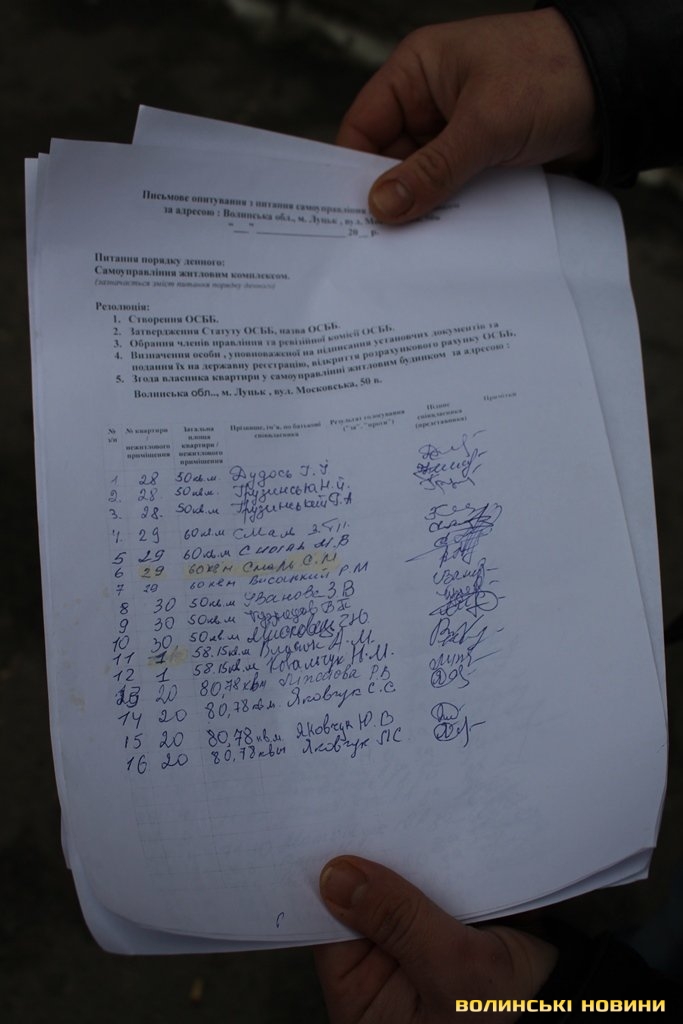 Письмове опитування з питання самоуправління
за адресою : Волинська обл., м. Луцьк , вул.
"___" ____________ 20__ р.
Питання порядку денного:
Самоуправління житловим комплексом.
(зазначається зміст питання порядку денного)
Резолюція:
1. Створення ОСББ.
2. Затвердження Статуту ОСББ, назва ОСББ.
3. Обрання членів правління та ревізійної комісії ОСББ.
4. Визначення особи , уповноваженої на підписання установчих документів та
подання їх на державну реєстрацію, відкриття розрахункового рахунку ОСББ,
5. Згода власника квартири у самоуправлінні житловим будинком за адресою :
Волинська обл., м. Луцьк , вул. Московська, 50 в.
№ з/п № квартири / нежитлового приміщення Загальна площа квартири / нежитлового приміщення Прізвище, ім'я, по батькові співвласника Результат голосування ("за", "проти") Підпис співвласника (представника) Примітки
1. 28 50 кв.м. Дудось
2. 28. 50 кв.м. Грузинська Н.Й.
3. 28. 50 кв.м Грузинський
4. 29 60 кв.м Смаль
5 29 60 кв.м М.В
6 29 60 квм Смаль С.М
7 29 60 квм Висоцкий Р.М
8 30 50 кв.м Іванова З.В
9 30 50 кв.м
10 30 50 кв.м
11 1 58.15 кв.м А.М.
12 1 58.15 кв.м Ковальчук Н.М.
13 20 80,78 квм Р.В
14 20 80,78 квм. Яковчук С.С.
15 20 80,78 кв.м. Яковчук Ю.В
16 20 80,78 квм Яковчук
ВОЛИНСЬКІ НОВИНИ